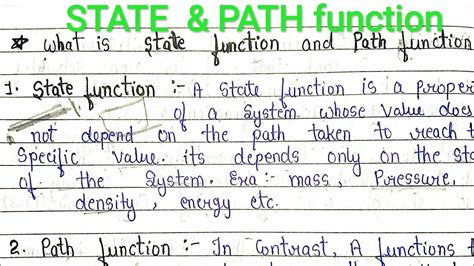 STATE & PATH function
* What is State function and Path function
1. State function :- A State function is a proper
of a System whose value does
not depend on the path taken to reach t
Specific value. its depends only on the sta
of the System. Exa:- mass, Puressure,
density, energy etc.
2. Path function :- In Contrast, A functions t